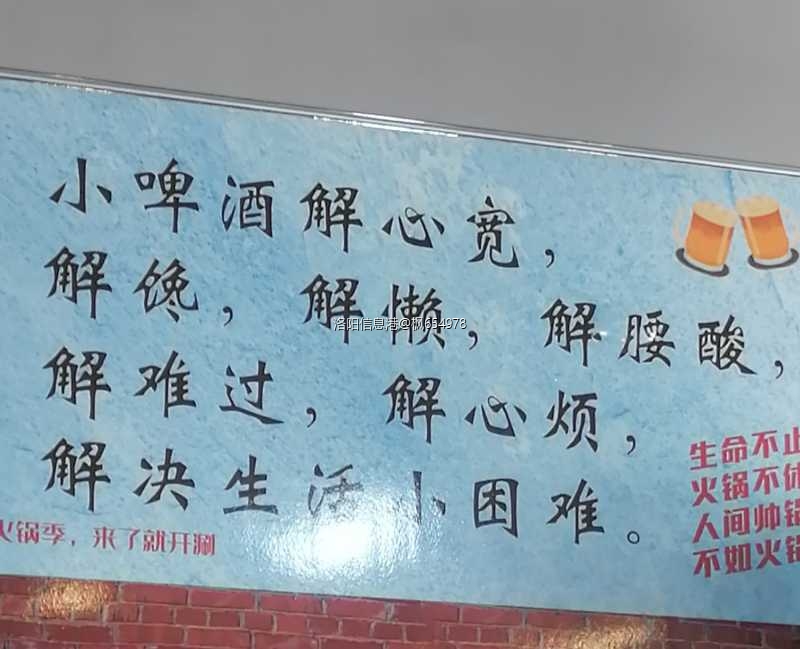 小啤酒解心宽，
解馋，解懒，解腰酸，
解难过，解心烦，
解决生活小困难。
火锅季，来了就开涮
生命不止
火锅不休
人间帅锅
不如火锅
洛阳信息港@枫654978